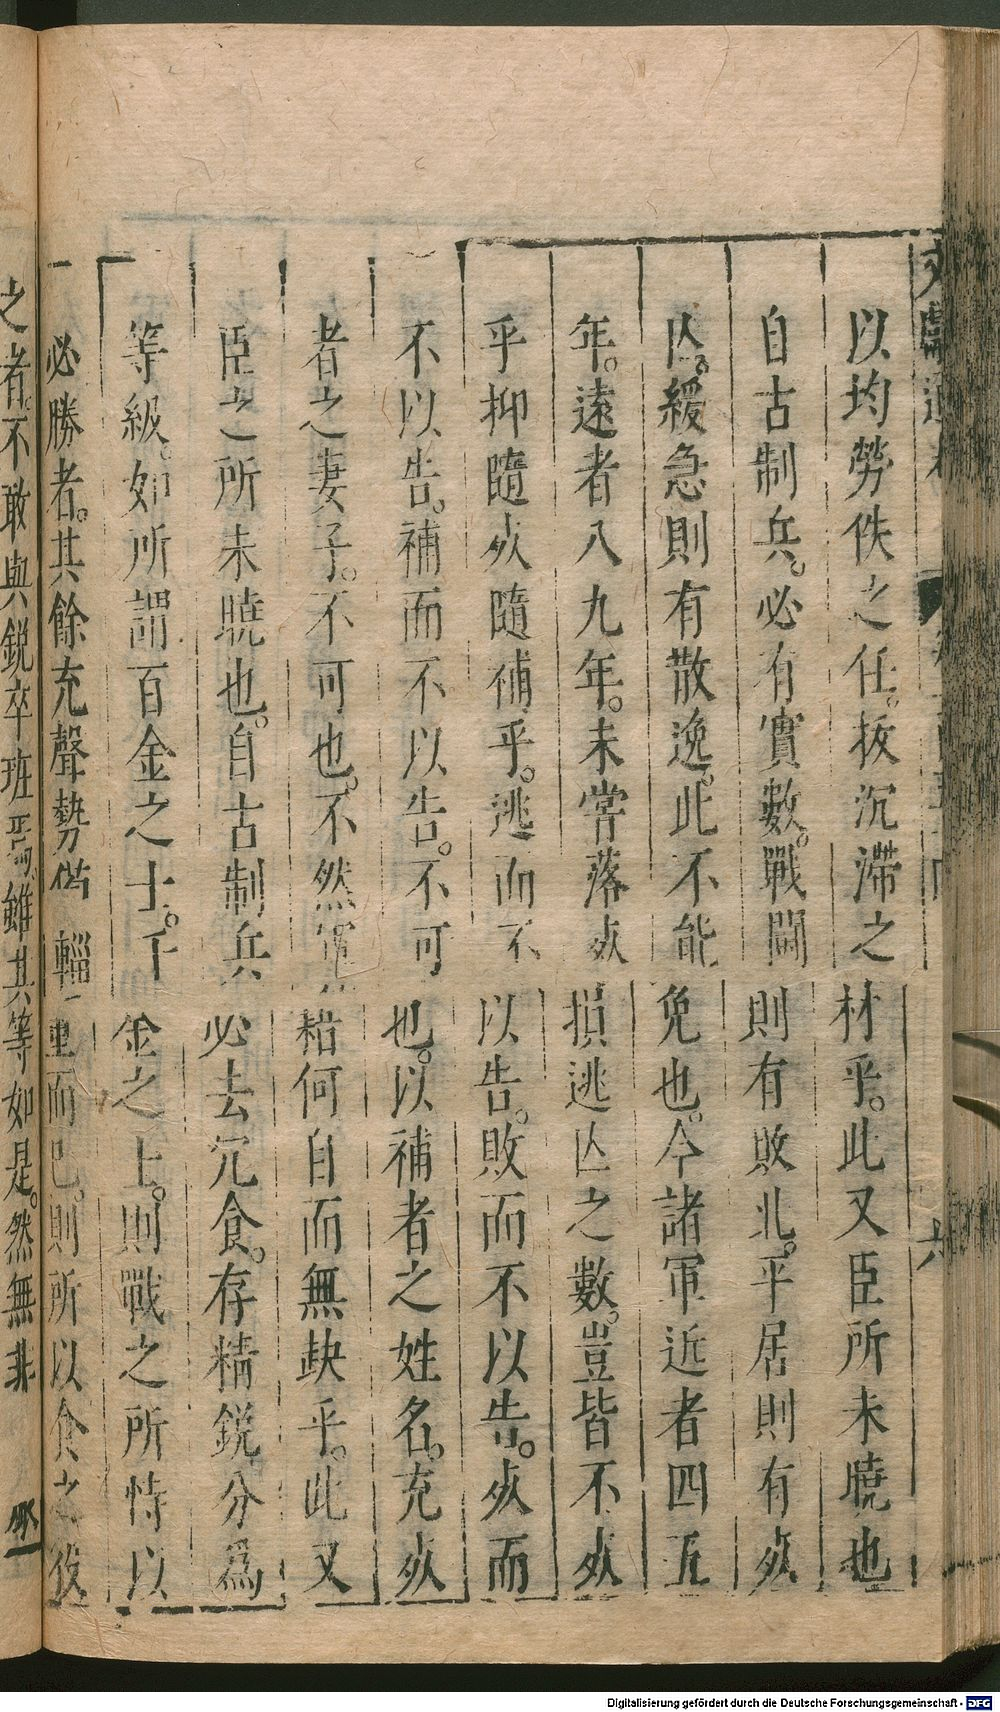 以均勞佚之任。抜沉滯之材乎。此又臣所未曉也
自古制兵。必有實數。戰鬪則有敗北。平居則有㱙
亾。緩急則有散逸。此不能免也。今諸軍近者四五
年。遠者八九年。未甞落㱙損逃亾之數。豈皆不㱙
乎抑隨㱙隨補乎。逃而不以告。敗而不以告。㱙而
不以告。補而不以告。不可也。以補者之姓名。充㱙
者之妻子。不可也。不然軍給何自而無缺乎。此又
臣之所未曉也。自古制兵必去冗食。存精銳分爲
等級。如所謂百金之士。千金之士。則戰之所恃以
必勝者。其餘充聲勢偹輜重而已。則所以食之役
之者。不敢與銳卒班焉。雖其等如是。然無非
六
Digitalisierung gefördert durch die Deutsche Forschungsgemeinschaft - DFG